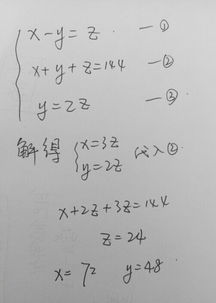 x-y=z —①
x+y+z=144 —②
y=2z —③
解得 {x=3z
y=2z 代入②
x+2z+3z=144
z=24
x=72 y=48